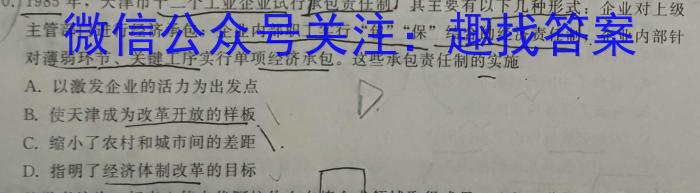 1985年，天津市十二个工业企业试行承包责任制，其主要有以下几种形式：企业对上级
主管部门进行经济承包
微信公众号关注：趣找答案
对薄弱环节、关键工序实行单项经济承包。这些承包责任制的实施
A. 以激发企业的活力为出发点
B. 使天津成为改革开放的样板
C. 缩小了农村和城市间的差距
D. 指明了经济体制改革的目标